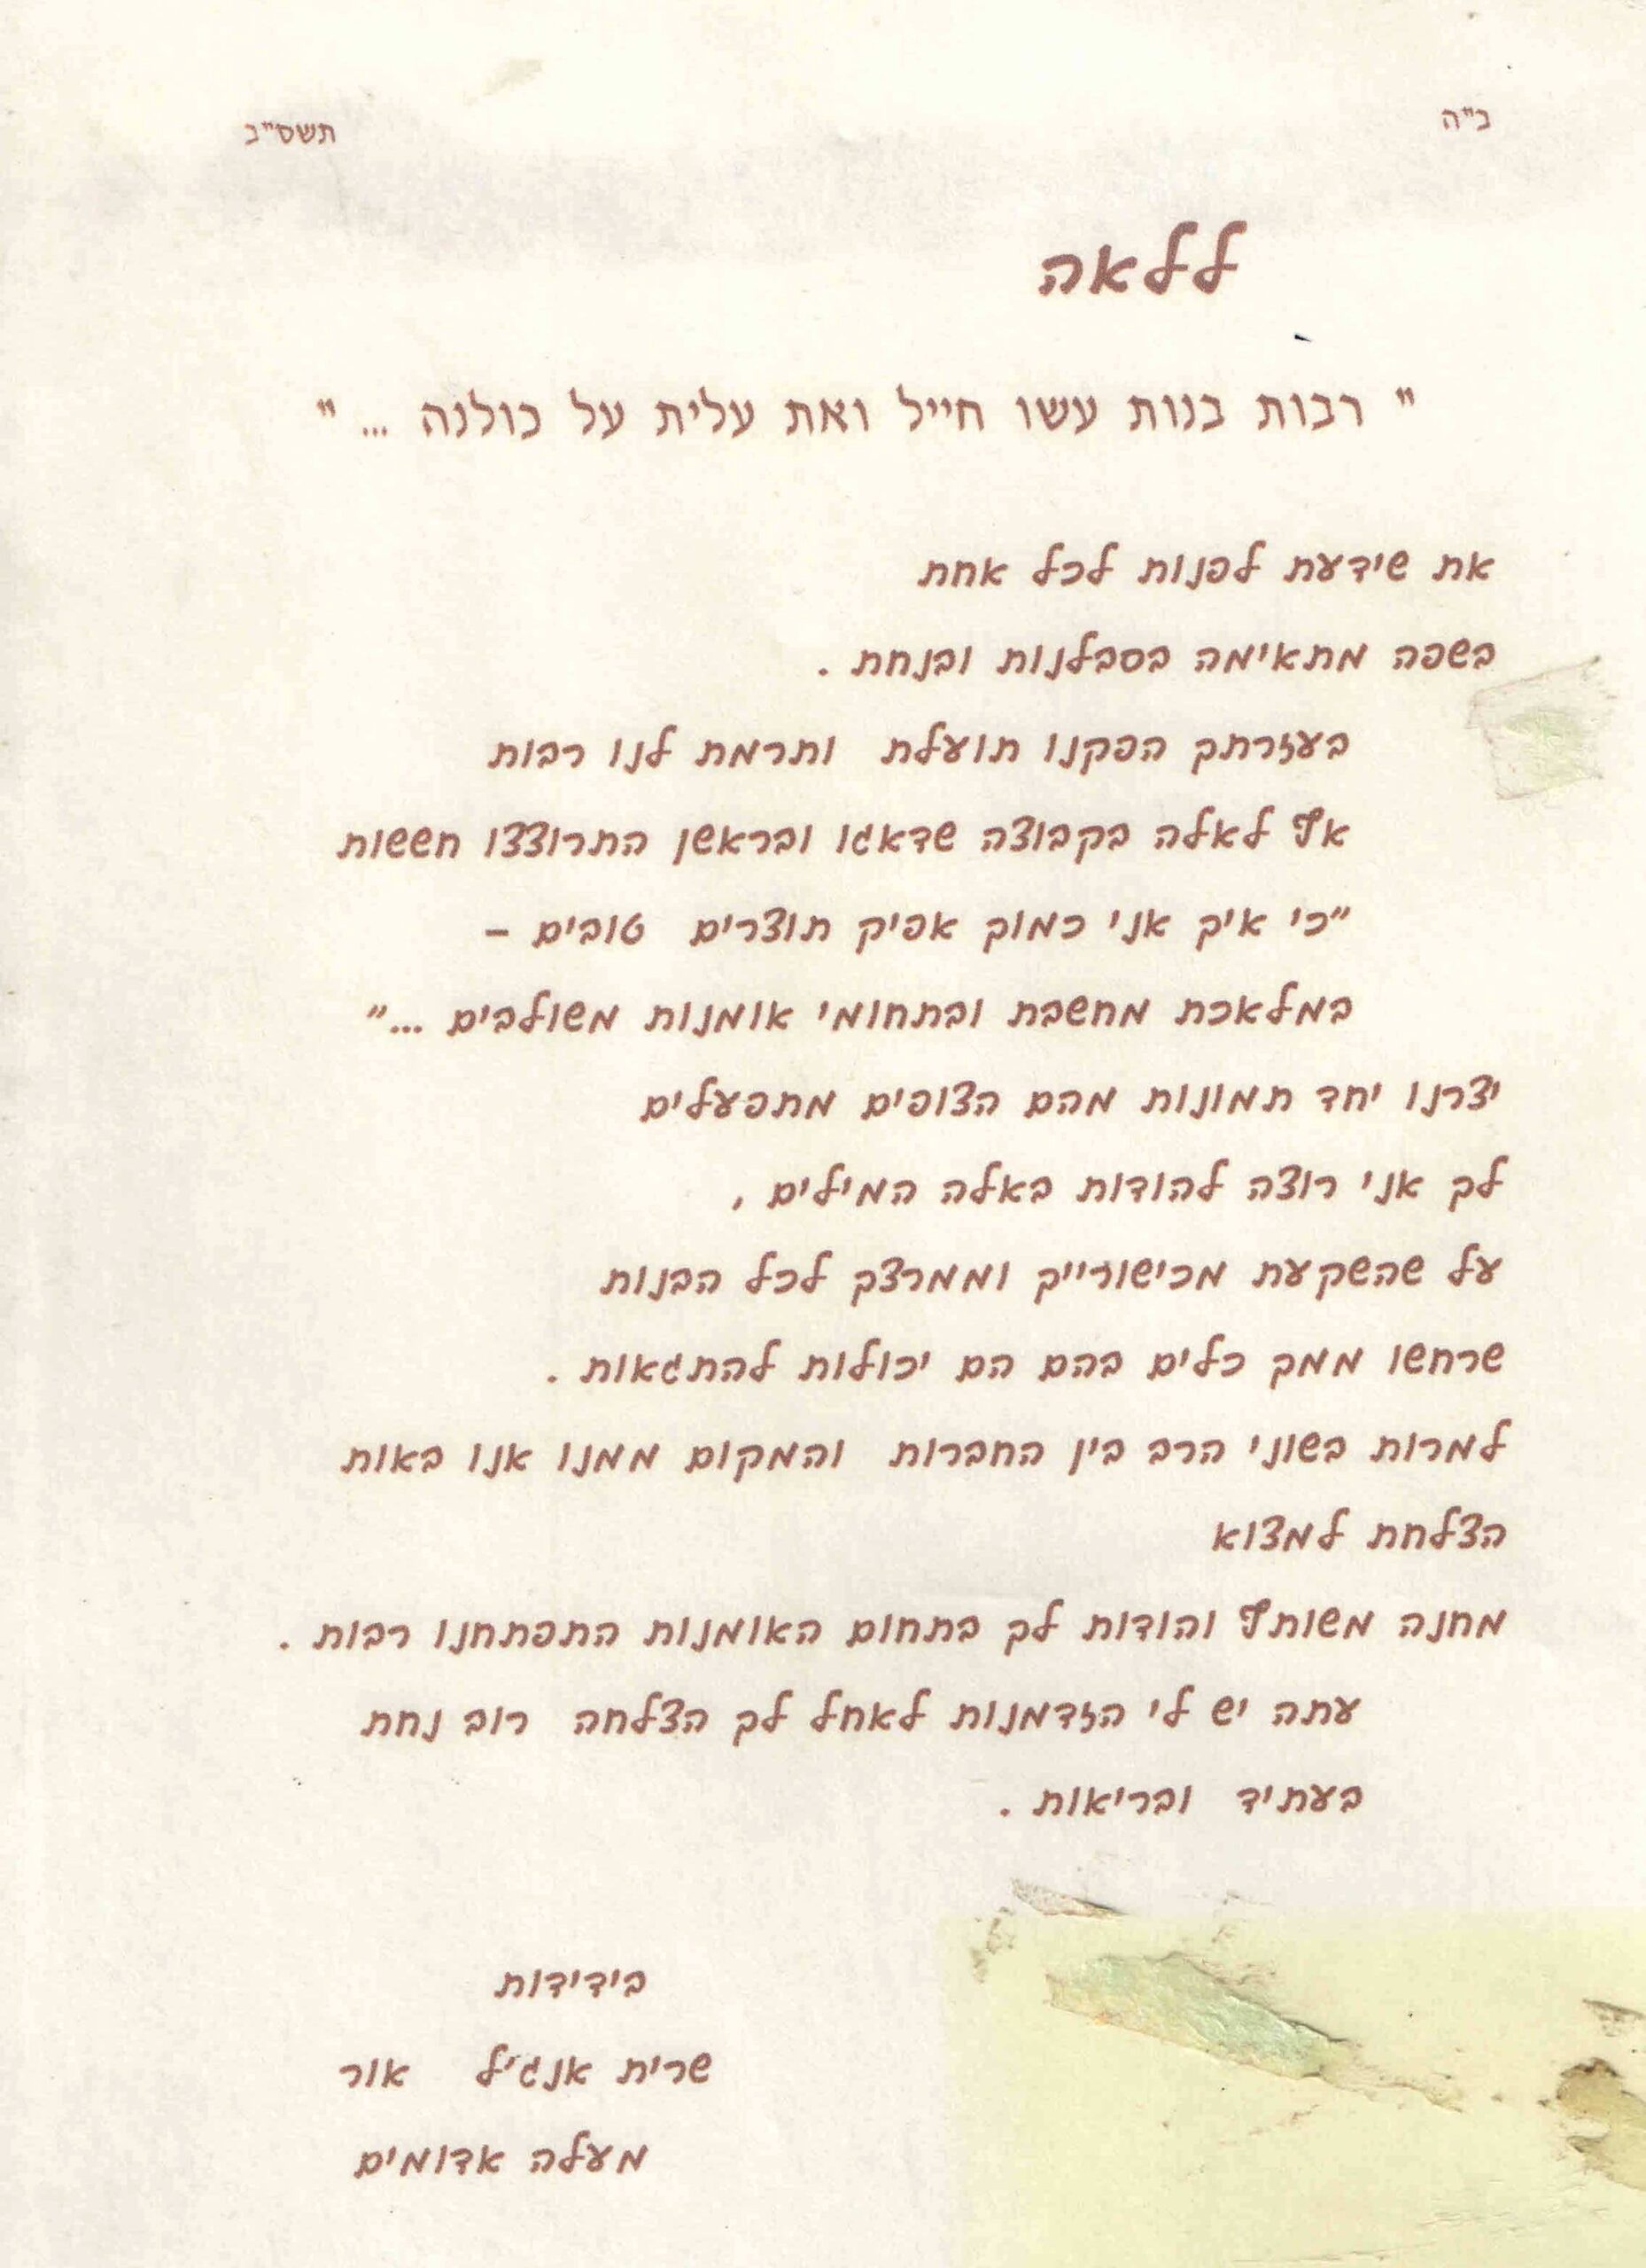 ב"ה
תשס"ב
ללאה
" רבות בנות עשו חייל ואת עלית על כולנה ... "
את שידעת לפנות לכל אחת
בשפה מתאימה בסבלנות ובנחת .
בעזרתך הפקנו תועלת ותרמת לנו רבות
אף לאלה בקבוצה שדאגו ובראשן התרוצצו חששות
"כי איך אני כמוך אפיק תוצרים טובים –
במלאכת מחשבת ובתחומי אומנות משולבים ..."
יצרנו יחד תמונות מהם הצופים מתפעלים
לך אני רוצה להודות באלה המילים ,
על שהשקעת מכישורייך וממרצך לכל הבנות
שרחשו ממך כלים בהם הם יכולות להתגאות .
למרות בשוני הרב בין החברות והמקום ממנו אנו באות
הצלחת למצוא
מחנה משותף והודות לך בתחום האומנות התפתחנו רבות .
עתה יש לי הזדמנות לאחל לך הצלחה רוב נחת
בעתיד ובריאות .
בידידות
שרית אנג'ל אור
מעלה אדומים